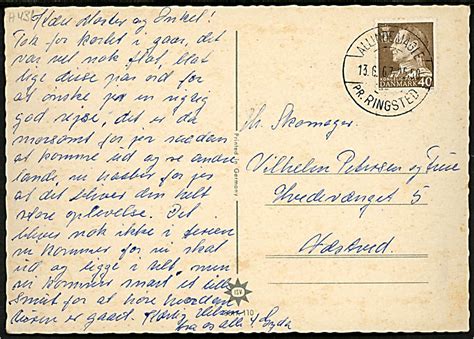 H 431
Kære Moster og Onkel!
Tak for kortet i gaar, det
var vel nok flot, blot
lige disse par ord for
at ønske jer en rigtig
god rejse, det er da
morsomt for jer saadan
at komme ud og se andre
lande, vi haaber for jer
at det bliver den helt
store oplevelse. Det
bliver nok ikke i ferien
vi kommer for vi skal
ud og ligge i telt, men
vi kommer snart et lille
smut for at høre hvordan
turen er gaaet. Kærlig Hilsen
fra os alle 4 Gyda
Printed in Germany
110
ALLINDEMAGLE
13.6.67
PR. RINGSTED
DANMARK 40
Hr. Skomager.
Vilhelm Petersen og Frue
Hvedevænget 5
Næstved.